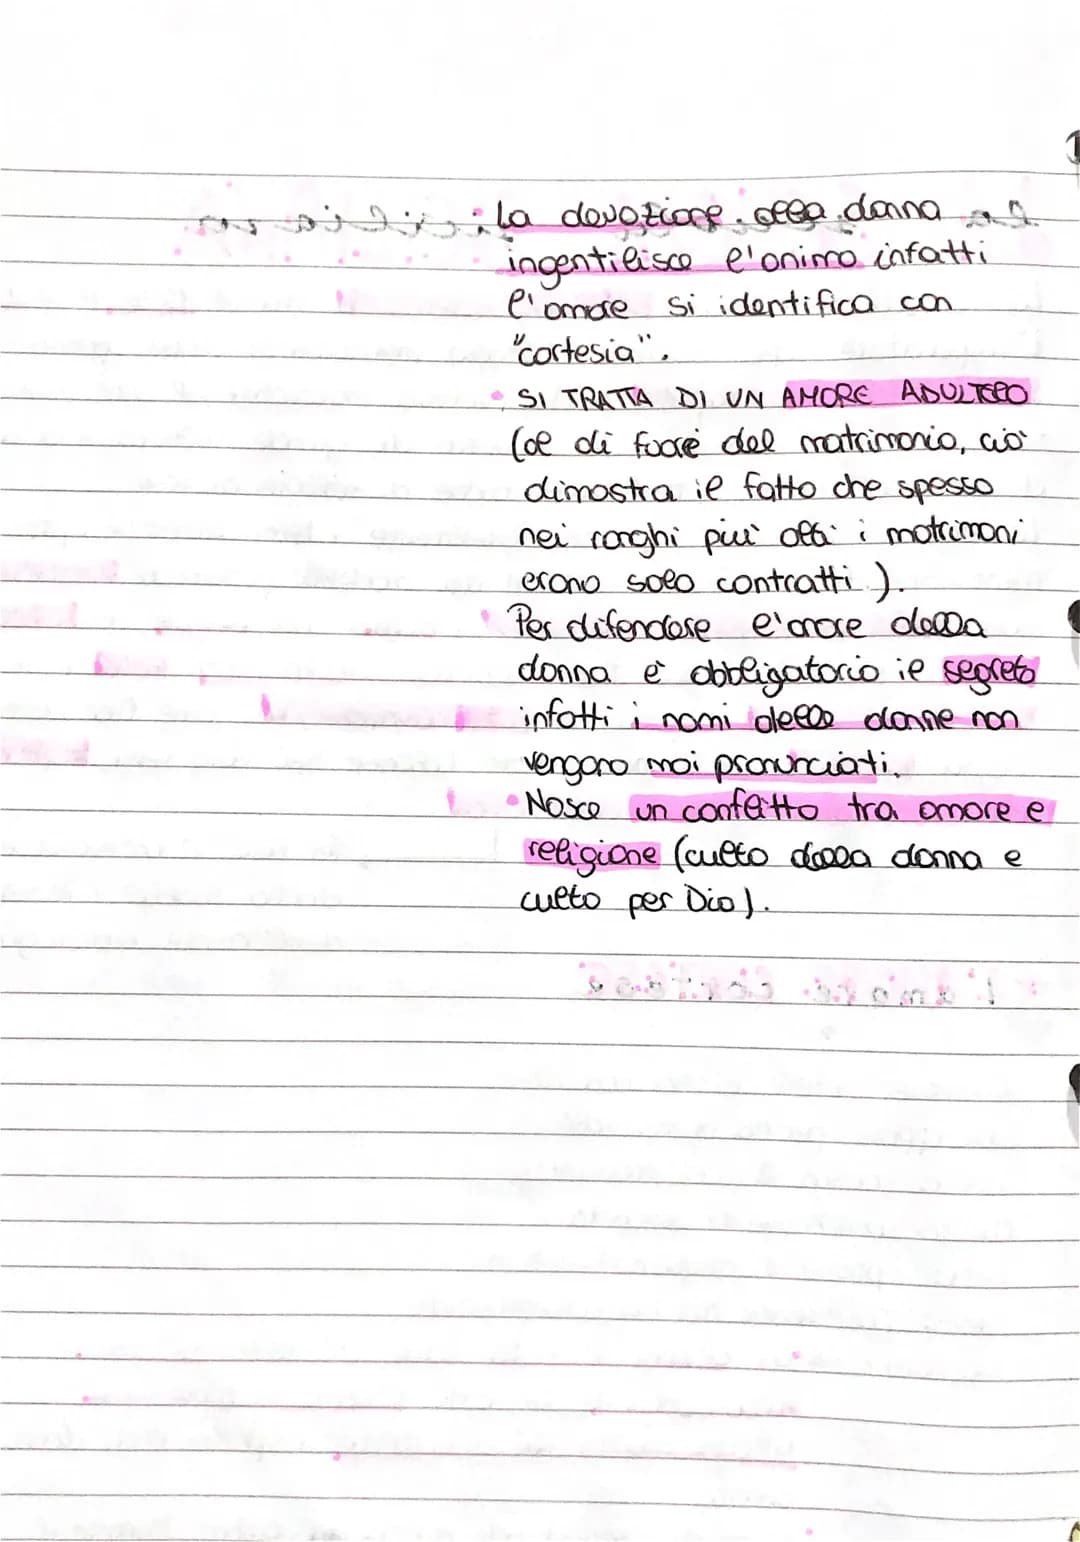 • La devozione alla donna
ingentilisce l'animo infatti
l'amore si identifica con
"cortesia".
• SI TRATTA DI UN AMORE ADULTERO
(al di fuori del matrimonio, ciò
dimostra il fatto che spesso
nei ranghi più alti i matrimoni
erano solo contratti).
• Per difendere l'onore della
donna è obbligatorio il segreto
infatti i nomi delle donne non
vengono mai pronunciati.
• Nasce un conflitto tra amore e
religione (culto della donna e
culto per Dio).